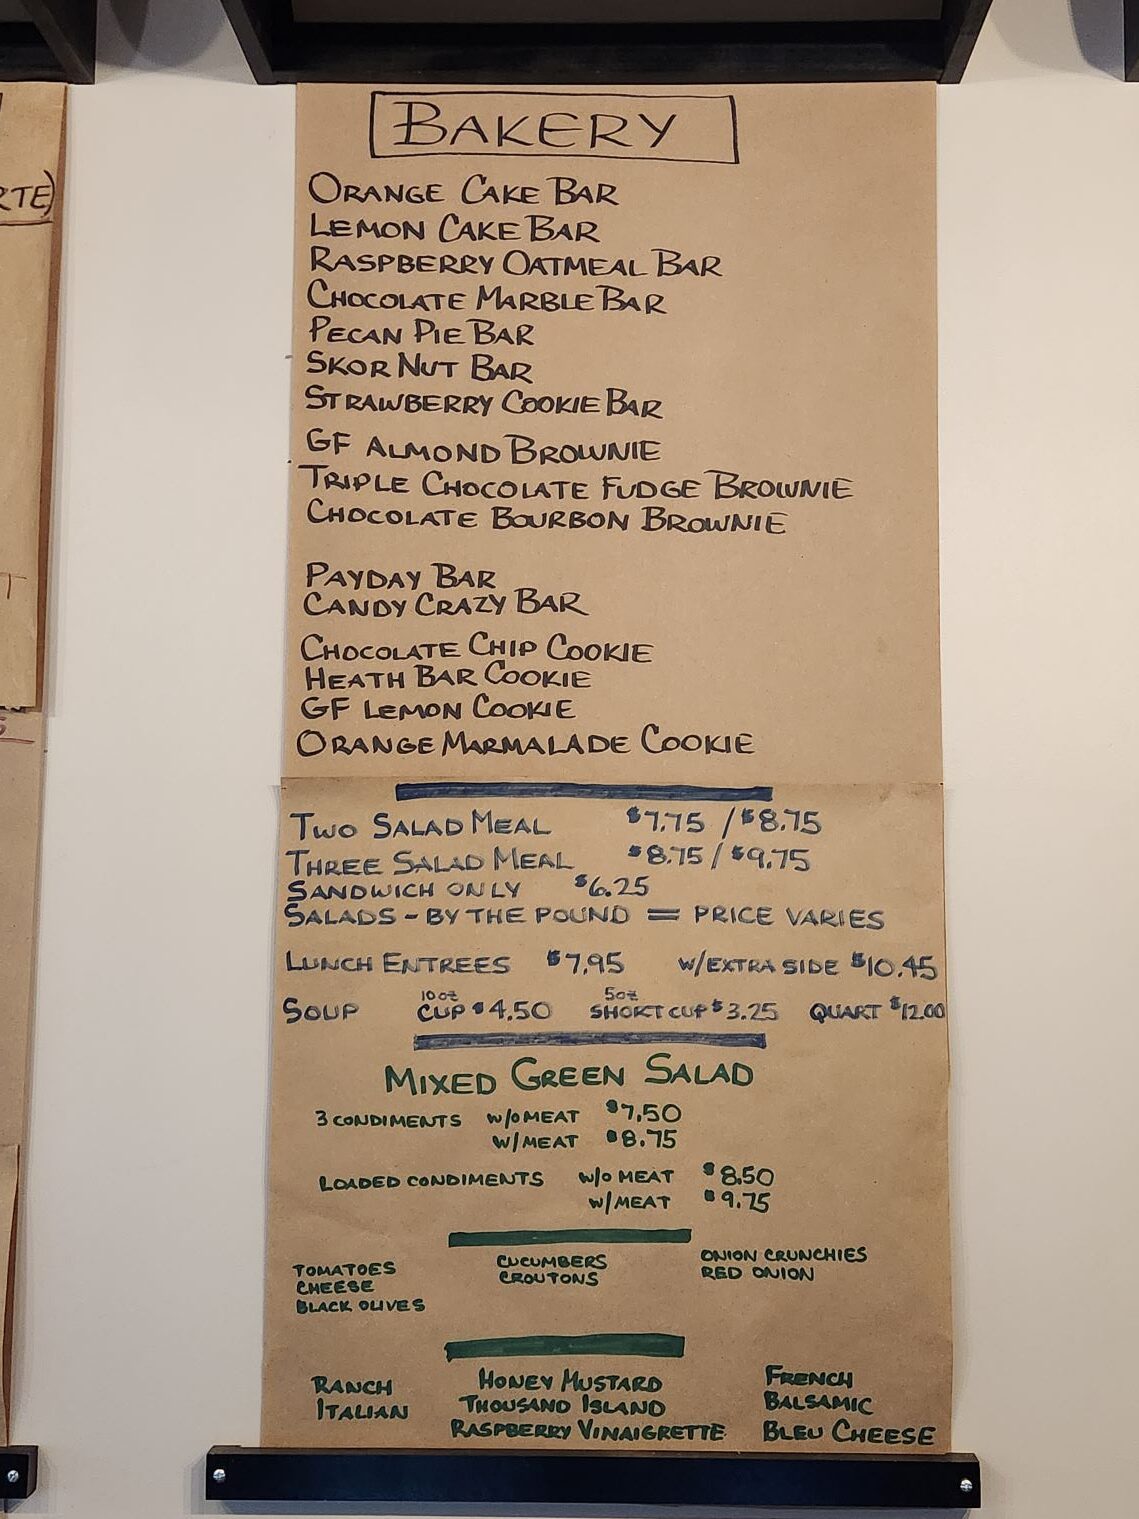 RTE)
BAKERY
ORANGE CAKE BAR
LEMON CAKE BAR
RASPBERRY OATMEAL BAR
CHOCOLATE MARBLE BAR
PECAN PIE BAR
SKOR NUT BAR
STRAWBERRY COOKIE BAR
GF ALMOND BROWNIE
TRIPLE CHOCOLATE FUDGE BROWNIE
CHOCOLATE BOURBON BROWNIE
PAYDAY BAR
CANDY CRAZY BAR
CHOCOLATE CHIP COOKIE
HEATH BAR COOKIE
GF LEMON COOKIE
ORANGE MARMALADE COOKIE
TWO SALAD MEAL $7.75 / $8.75
THREE SALAD MEAL $8.75 / $9.75
SANDWICH ONLY $6.25
SALADS - BY THE POUND = PRICE VARIES
LUNCH ENTREES $7.95 W/EXTRA SIDE $10.45
SOUP 10oz CUP $4.50 5oz SHORT CUP $3.25 QUART $12.00
MIXED GREEN SALAD
3 CONDIMENTS W/O MEAT $7.50
W/MEAT $8.75
LOADED CONDIMENTS W/O MEAT $8.50
W/MEAT $9.75
TOMATOES CUCUMBERS ONION CRUNCHIES
CHEESE CROUTONS RED ONION
BLACK OLIVES
RANCH HONEY MUSTARD FRENCH
ITALIAN THOUSAND ISLAND BALSAMIC
RASPBERRY VINAIGRETTE BLEU CHEESE